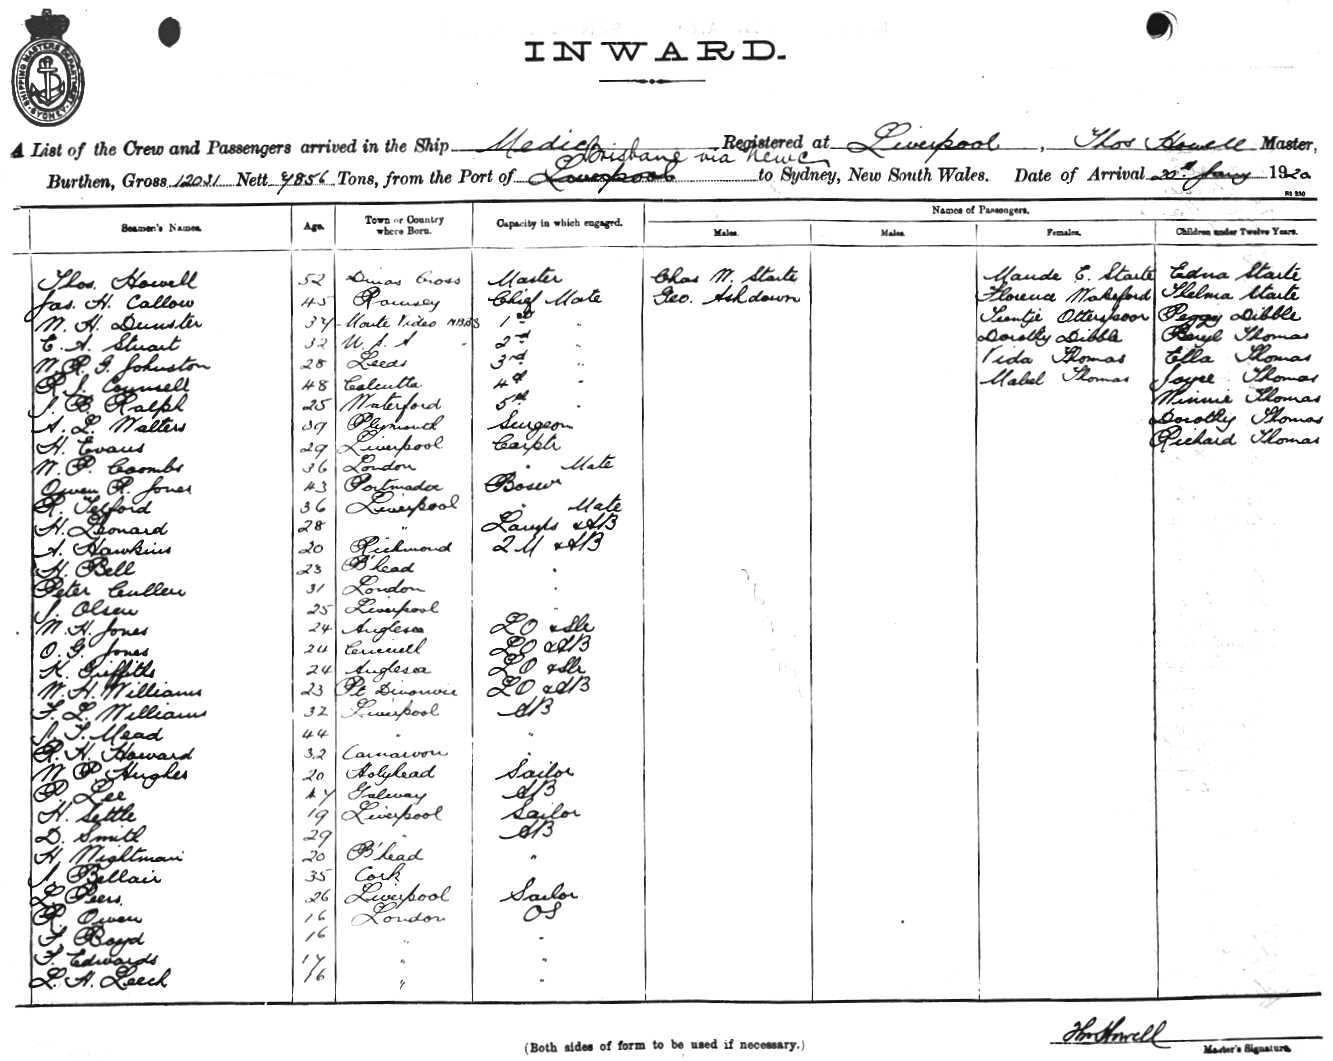 SHIPPING MASTERS DEPARTMENT SYDNEY
INWARD.
A List of the Crew and Passengers arrived in the Ship Medic Registered at Liverpool, Thos Howell Master,
Brisbane via Newc
Burthen, Gross 12031 Nett 7856 Tons, from the Port of Liverpool to Sydney, New South Wales. Date of Arrival 20th Jany 1920
Names of Passengers.
Seamen's Names. Age. Town or Country where Born. Capacity in which engaged. Males. Males. Females. Children under Twelve Years.
Thos. Howell 52 Dinas Cross Master Chas W. Starte Maude E. Starte Edna Starte
Jas. H. Callow 45 Ramsey Chief Mate Geo. Ashdown Florence Wakeford Thelma Starte
W. H. Dunster 37 Monte Video NBBS 1st " Tientje Otterspoor Peggy Dibble
E. A. Stuart 32 U.S.A 2nd " Dorothy Dibble Beryl Thomas
W. R. G. Johnston 28 Leeds 3rd " Vida Thomas Ella Thomas
R. J. Counsell 48 Calcutta 4th " Mabel Thomas Joyce Thomas
J. B. Ralph 25 Waterford 5th " Winnie Thomas
A. L. Walters 39 Plymouth Surgeon Dorothy Thomas
H. Evans 29 Liverpool Carptr Richard Thomas
W. P. Coombs 36 London " Mate
Owen R. Jones 43 Portmadoc Bosun
R. Telford 36 Liverpool " Mate
H. Leonard 28 " Lamps & AB
A. Hawkins 20 Richmond 2 M & AB
H. Bell 23 B'head "
Peter Cullen 31 London "
J. Olsen 25 Liverpool "
W. H. Jones 24 Anglesea LO & Slr
O. G. Jones 24 LO & AB
K. Griffiths 24 Anglesea LO & Slr
W. H. Williams 23 Pt Dinorwic LO & AB
F. L. Williams 32 Liverpool AB
J. T. Mead 44 " "
R. H. Howard 32 Carnarvon "
W. P. Hughes 20 Holyhead Sailor
P. Lee 47 Galway AB
H. Settle 19 Liverpool Sailor
D. Smith 29 " AB
H. Wightman 20 B'head "
J. Bellair 35 Cork
L. Peers 26 Liverpool Sailor
R. Owen 16 London OS
F. Boyd 16 " "
T. Edwards 17 " "
L. H. Leech 16 " "
(Both sides of form to be used if necessary.)
Thos Howell
Master's Signature.